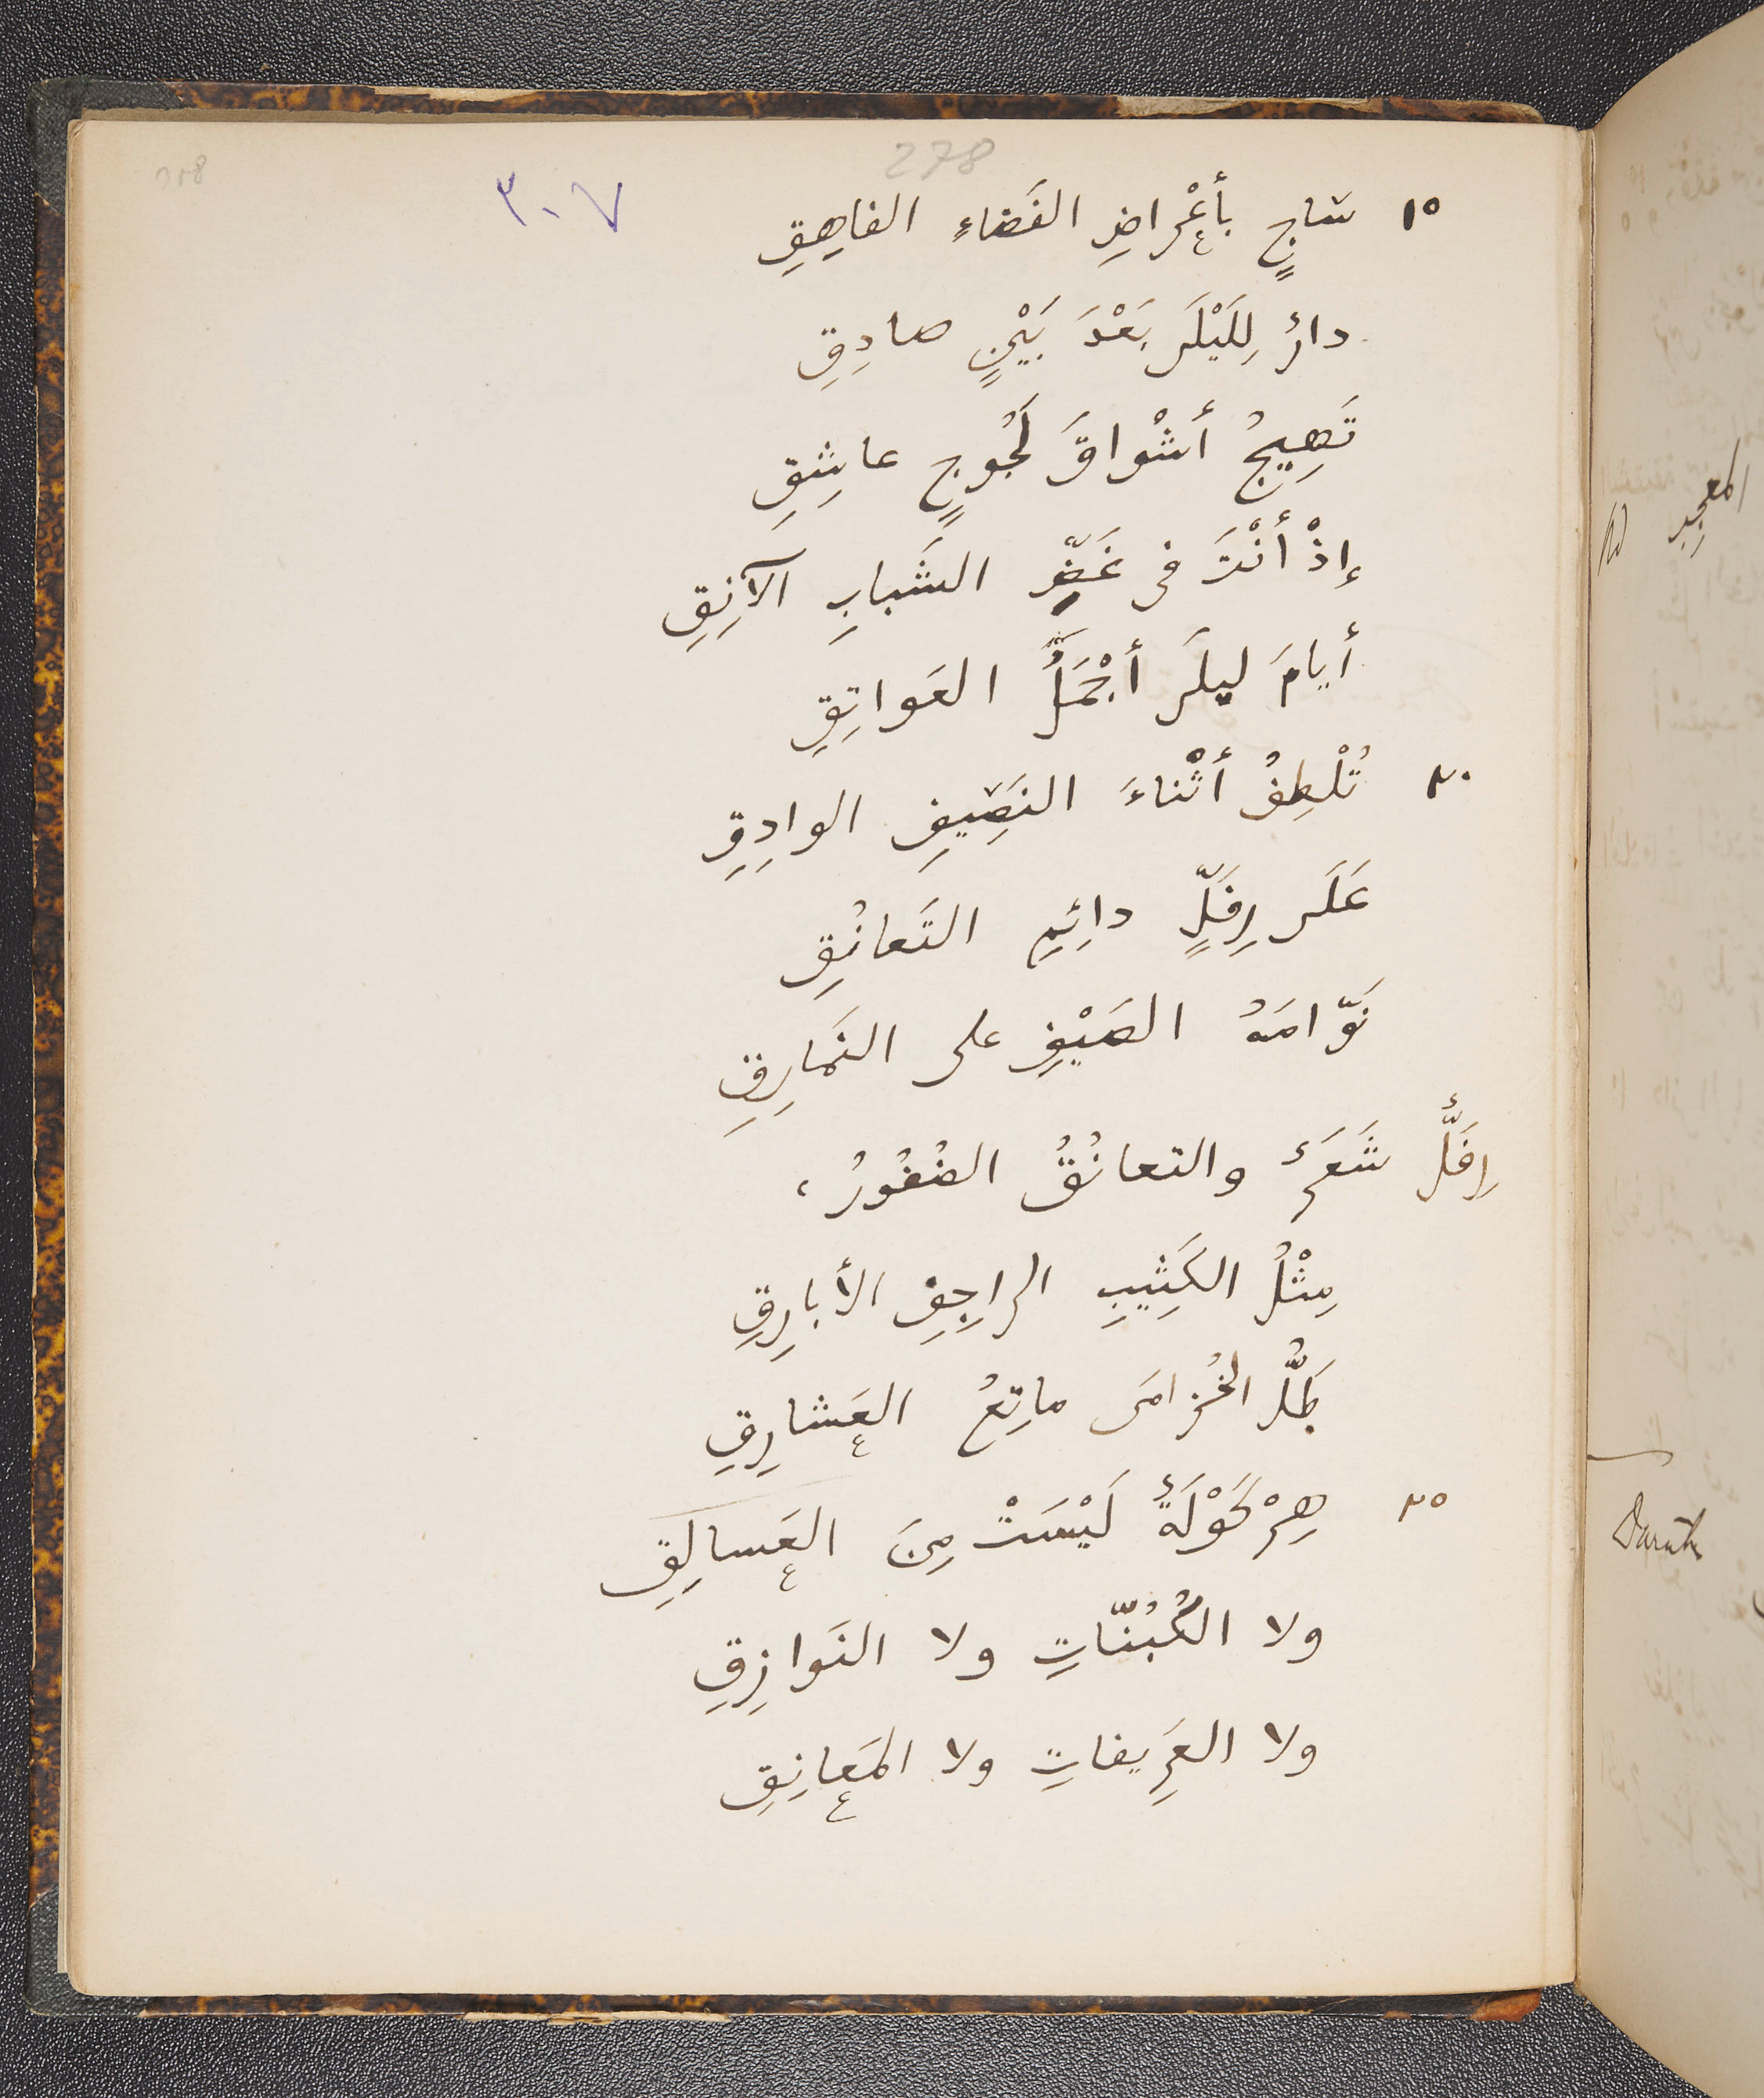 278
٣٠٧
١٥ شاجٍ بأعْراضِ الفَضاءِ الفاهِقِ
دارٌ لِلَيْلَى بَعْدَ بَيْنٍ صادِقِ
تَهِيجُ أشْواقَ لَجُوجٍ عاشِقِ
إذْ أنْتَ فى غَضِّ الشَبابِ الآنِقِ
أيامَ ليلَى أجْمَلُ العَواتِقِ
٢٠ تُلْطِفُ أثْناءَ النَصِيفِ الوادِقِ
عَلَى رِفَلٍّ دائِمِ التَعانُقِ
نَوّامَهُ الصَيْفِ على النَمارِقِ
رِفَلٌّ شَعَرٌ والتعانُقُ الضُفُورُ،
مِثْلُ الكَثِيبِ الراجِفِ الأبارِقِ
طَلُّ الخُزامَى ماتِعُ العَشارِقِ
٢٥ هِرْكَوْلَةٌ لَيْسَتْ مِنَ العَسالِقِ
ولا الكُبُنّاتِ ولا النَوازِقِ
ولا العَرِيفاتِ ولا المَعانِقِ